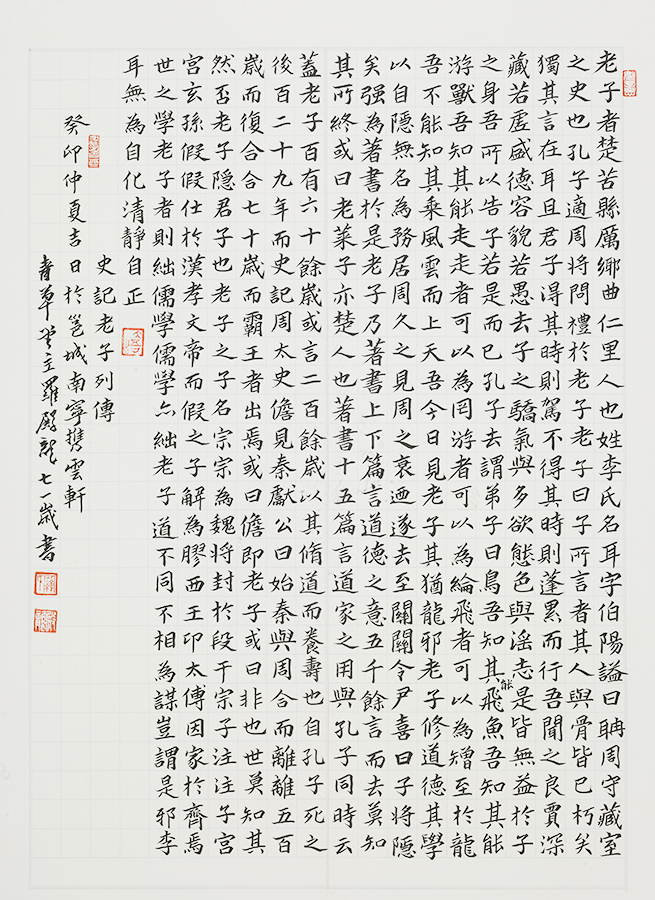 老子者楚苦縣厲鄉曲仁里人也姓李氏名耳字伯陽謚曰聃周守藏室
之史也孔子適周將問禮於老子老子曰子所言者其人與骨皆已朽矣
獨其言在耳且君子得其時則駕不得其時則蓬累而行吾聞之良賈深
藏若虛盛德容貌若愚去子之驕氣與多欲態色與淫志是皆無益於子
之身吾所以告子若是而已孔子去謂弟子曰鳥吾知其能飛魚吾知其能
游獸吾知其能走走者可以為罔游者可以為綸飛者可以為矰至於龍
吾不能知其乘風雲而上天吾今日見老子其猶龍邪老子修道德其學
以自隱無名為務居周久之見周之衰迺遂去至關關令尹喜曰子將隱
矣强為著書於是老子乃著書上下篇言道德之意五千餘言而去莫知
其所終或曰老萊子亦楚人也著書十五篇言道家之用與孔子同時云
蓋老子百有六十餘歲或言二百餘歲以其脩道而養壽也自孔子死之
後百二十九年而史記周太史儋見秦獻公曰始秦與周合而離離五百
歲而復合合七十歲而霸王者出焉或曰儋即老子或曰非也世莫知其
然否老子隱君子也老子之子名宗宗為魏將封於段干宗子注注子宮
宮玄孫假假仕於漢孝文帝而假之子解為膠西王卬太傅因家於齊焉
世之學老子者則絀儒學儒學亦絀老子道不同不相為謀豈謂是邪李
耳無為自化清靜自正
史記老子列傳
癸卯仲夏吉日於邕城南寧攜雲軒
青草堂主羅殿龍七一歲書